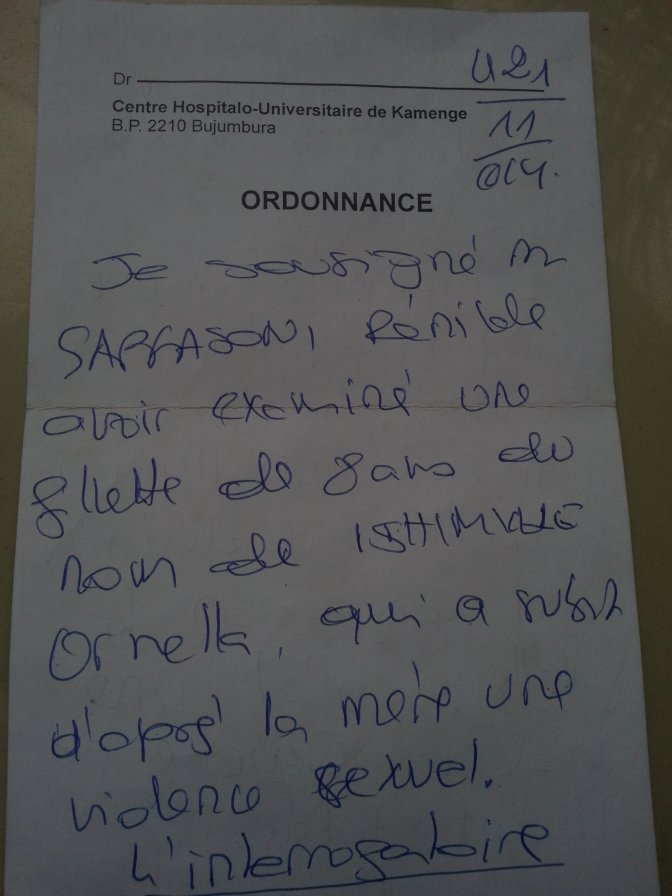 Dr
U21
11
014.
Centre Hospitalo-Universitaire de Kamenge
B.P. 2210 Bujumbura
ORDONNANCE
Je sousigné
avoir examiné une
fillette de 8 ans du
nom de
Ornella, qui a subit
d'apré la mère une
violence sexuel.
L'interrogatoire